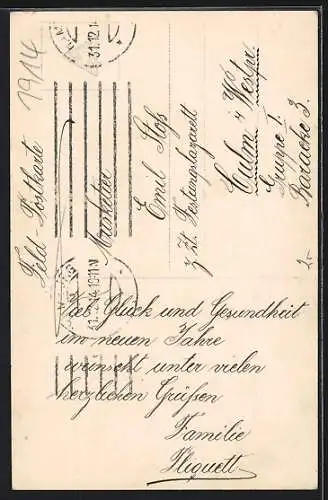 1914
31.12.1
Feld-Postkarte
31.12.14 10-11 N
Musketier
Emil Stoß
z. Zt. Festungslazarett
Culm i/Westpr.
Gruppe 1.
Baracke 3.
2.-
Viel Glück und Gesundheit
im neuen Jahre
wünscht unter vielen
herzlichen Grüßen
Familie